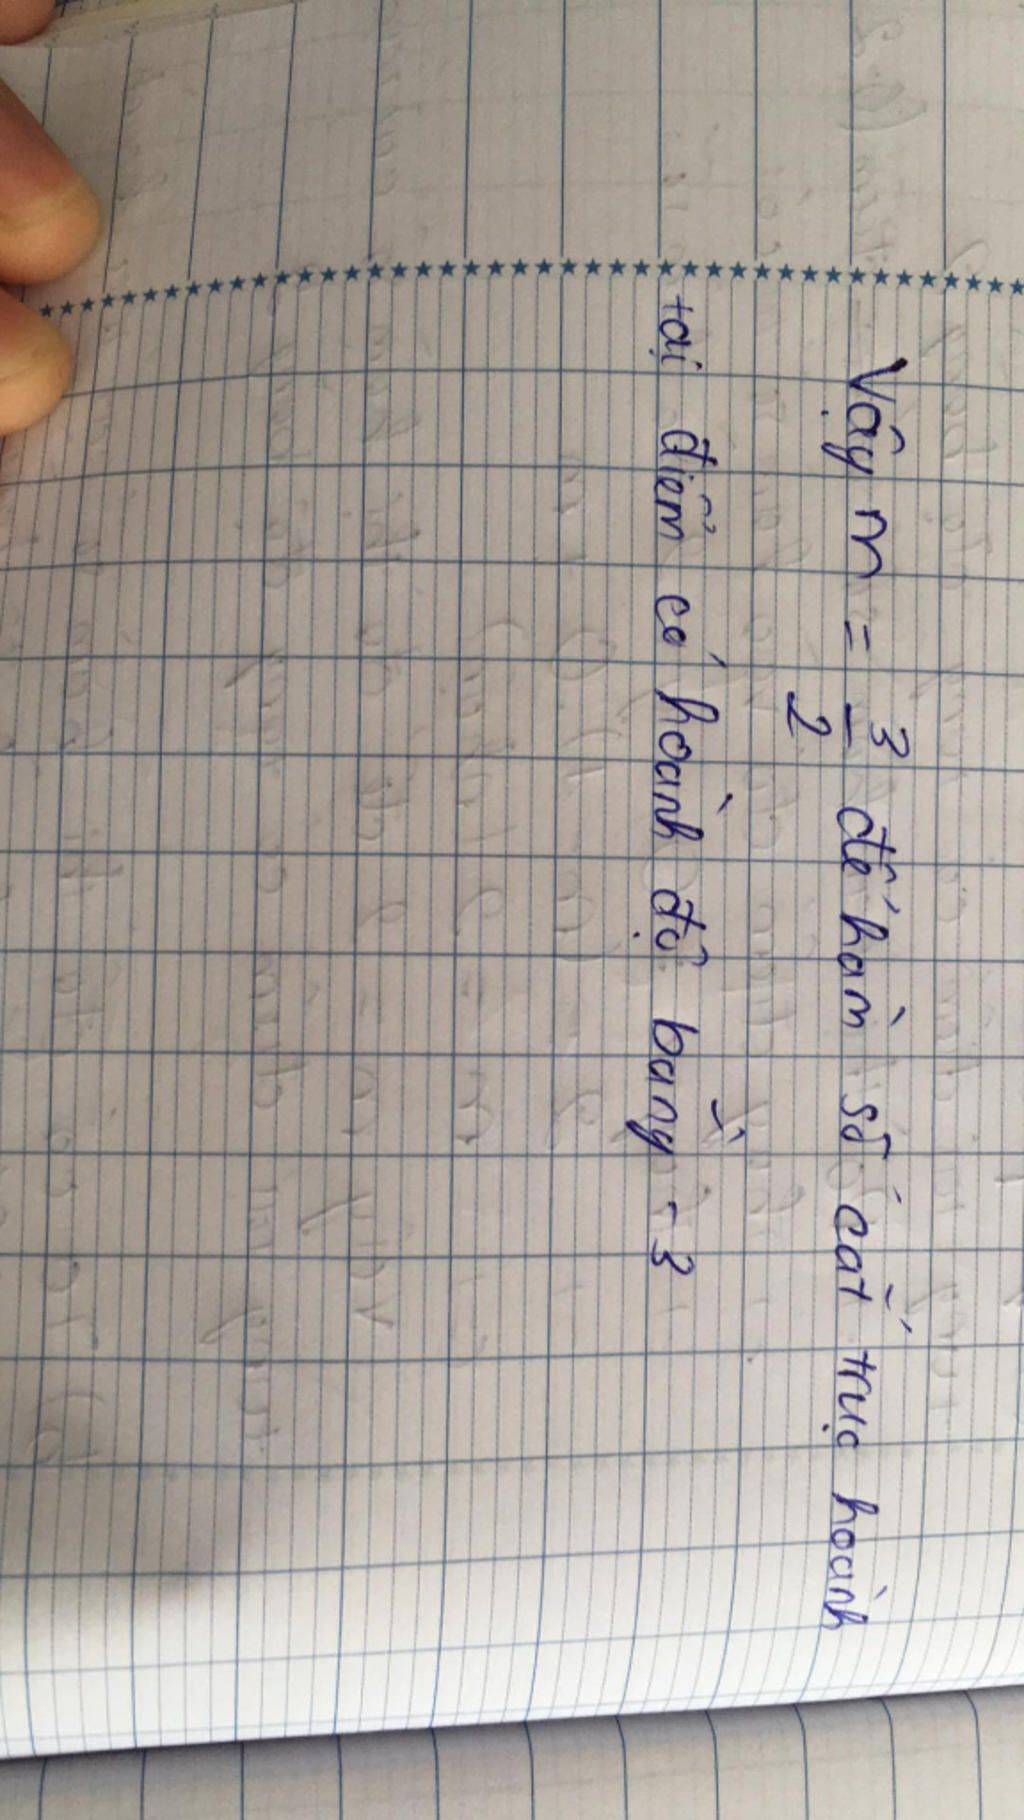 Vậy m = 3/2 để hàm số cắt trục hoành
tại điểm có hoành độ bằng -3